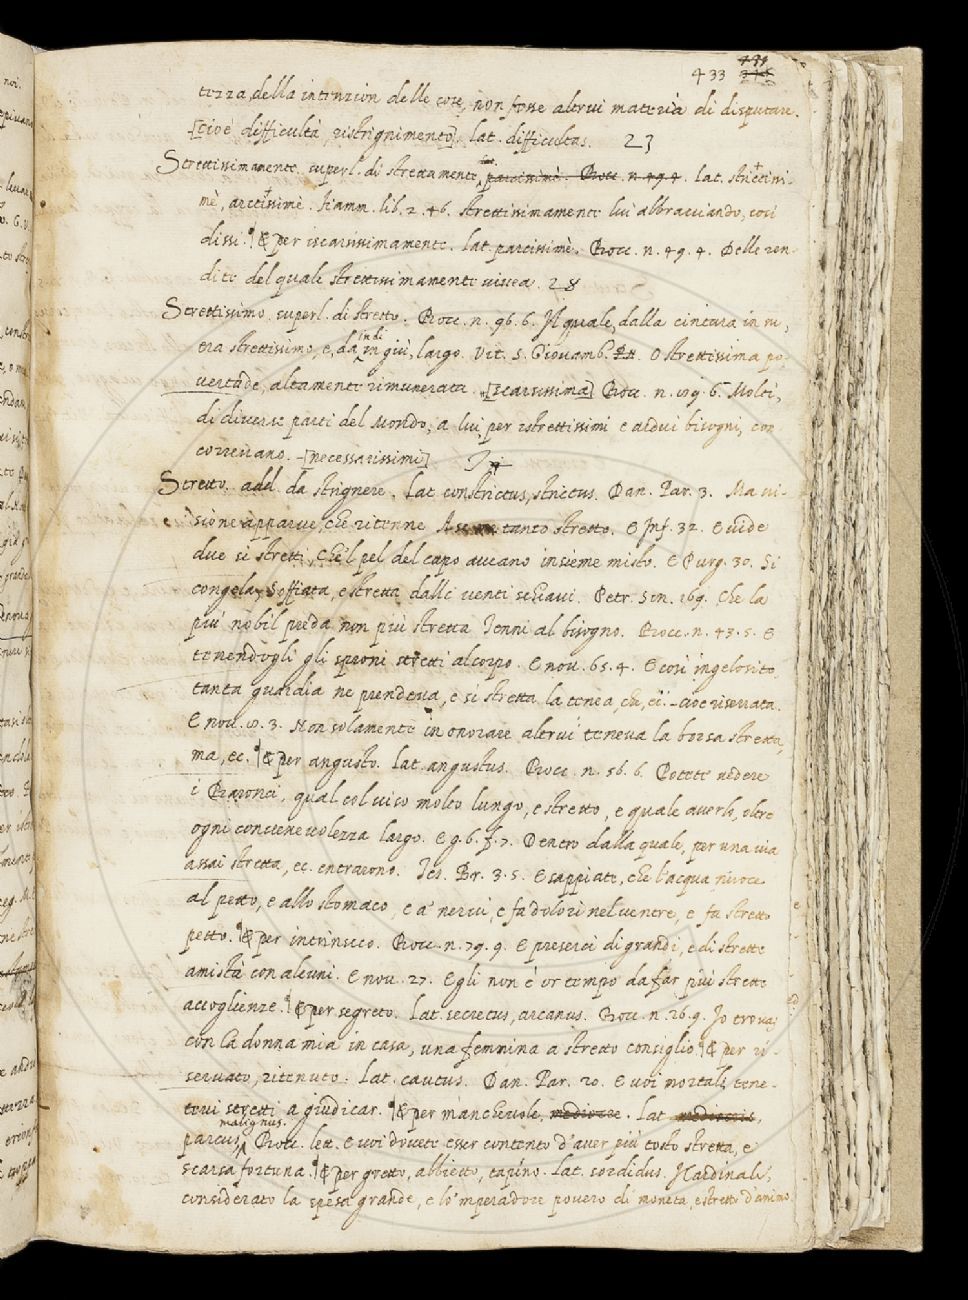 433
tezza, della intenzion delle cose, non fosse altrui materia di disputare.
[cioè difficultà, ristrignimento]. lat. difficultas. 23
Strettissimamente. superl. di strettamente, parcissimè. Bocc. n. 49. 4. lat. strictissi-
mè, arctissimè. fiamm. lib. 2. 46. strettissimamente lui abbracciando, così
dissi. & per iscarsissimamente. lat. parcissimè. Bocc. n. 49. 4. Delle ren-
dite del quale strettissimamente vivea. 28
Strettissimo. superl. di stretto. Bocc. n. 96. 6. Il quale, dalla cintura in su,
era strettissimo, e, da indi in giù, largo. Vit. S. Giovamb. O strettissima po-
vertade, altamente rimunerata. [scarsissima] Bocc. n. 6. Molti,
di diverse parti del Mondo, a lui per istrettissimi e ardui bisogni, con
correvano. [necessarissimi]
Stretto. add. da strignere. Lat. constrictus, strictus. Dan. Par. 3. Ma vi-
sione apparve, che ritenne A se tanto stretto. E Inf. 32. E vide
due sì stretti, Che'l pel del capo aveano insieme misto. E Purg. 30. Si
congela, Soffiata, e stretta dalli venti schiavi. Petr. Son. 169. Che la
più nobil preda non più stretta Tenni al bisogno. Bocc. n. 43. 5. E
tenendogli gli sproni stretti al corpo. E nov. 65. 4. E così ingelosito,
tanta guardia ne prendeva, e sì stretta la tenea, che, ec. cioè riservata.
E nov. 3. Non solamente in onorare altrui teneva la borsa stretta,
ma, ec. & per angusto. Lat. angustus. Bocc. n. 56. 6. Potete vedere
i Baronci, qual col viso molto lungo, e stretto, e quale averlo, oltre
ogni convenevolezza largo. E g. 6. f. 7. Dentro dalla quale, per una via
assai stretta, ec. entrarono. Tes. Br. 3. 5. E sappiate, che l'acqua nuoce
al petto, e allo stomaco, e a' nervi, e fa dolori nel ventre, e fa stretto
petto. & per intrinseco. Bocc. n. 79. 9. E preserci di grandi, e di strette
amistà con alcuni. E nov. 27. Egli non è or tempo da far più strette
accoglienze. & per segreto. Lat. secretus, arcanus. Bocc. n. 26. 9. Io trovai
con la donna mia in casa, una femmina a stretto consiglio. & per ri-
servato, ritenuto. Lat. cautus. Dan. Par. 20. E voi mortali, tene-
tevi stretti a giudicar. & per manchevole, mediocre. Lat. mediocris,
malignus.
parcus, Bocc. lett. E voi dovete esser contento d'aver più tosto stretta, e
scarsa fortuna. & per gretto, abbietto, tapino. Lat. sordidus. Il Cardinale,
considerato la spesa grande, e lo 'mperadore povero di moneta, e stretto d'animo